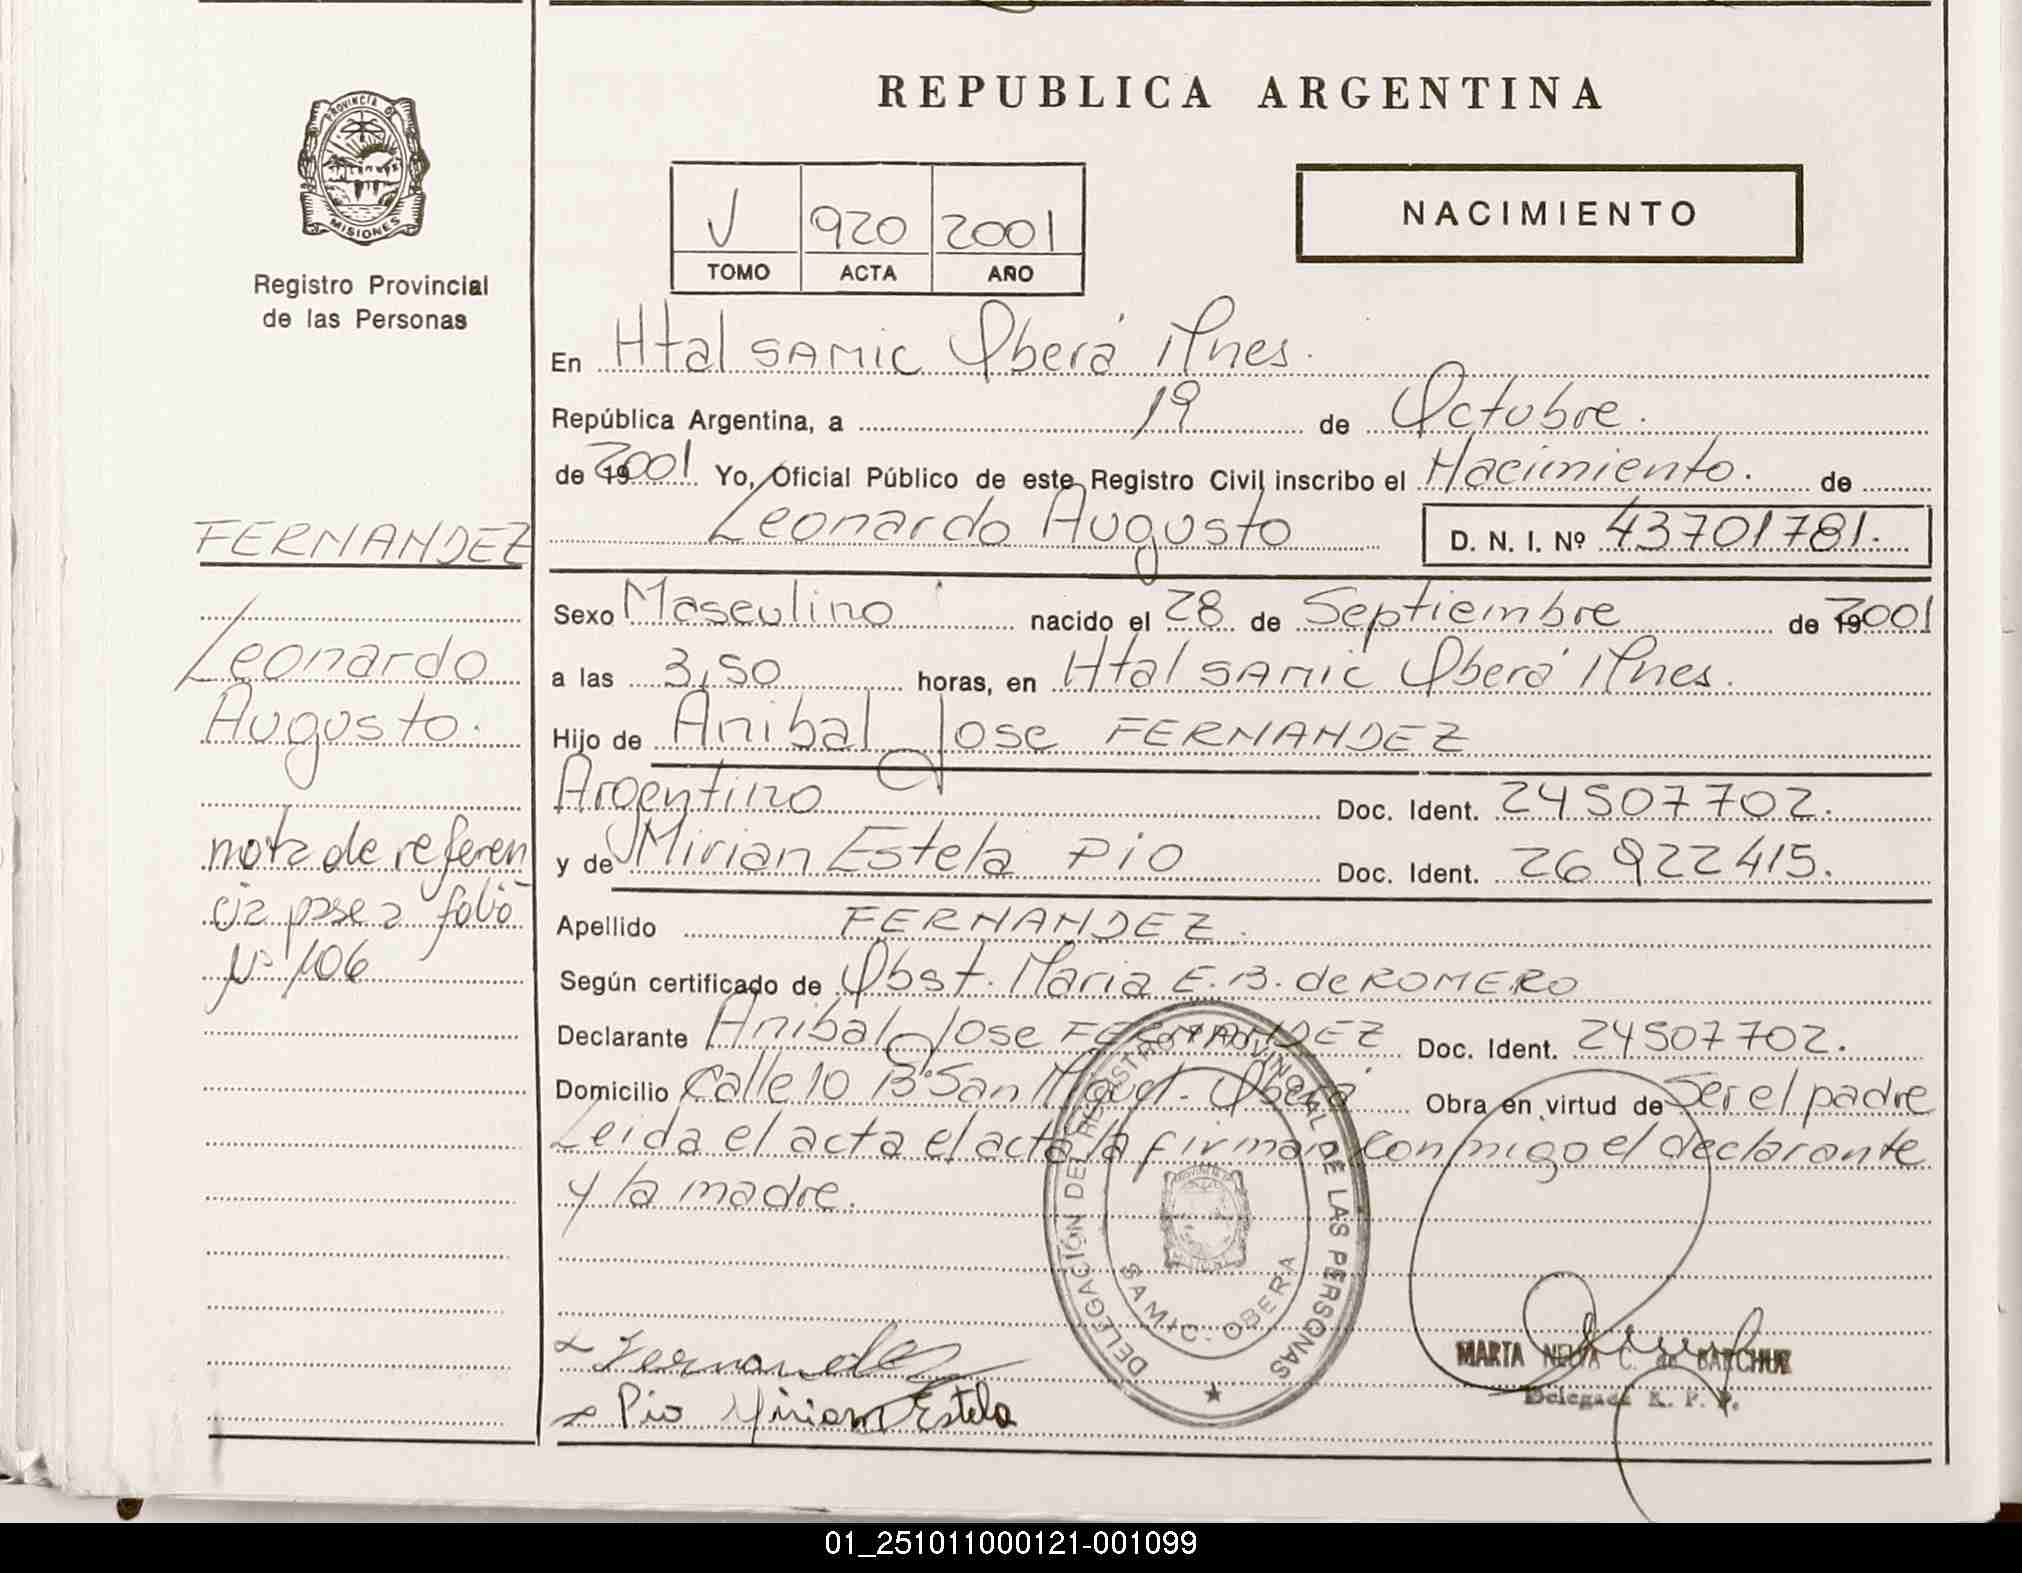 REPUBLICA ARGENTINA
PROVINCIA DE
MISIONES
Registro Provincial
de las Personas
V 920 2001
TOMO ACTA AÑO
NACIMIENTO
En Htal SAMIC Oberá Mnes.
República Argentina, a 19 de Octubre.
de 19 2001 Yo, Oficial Público de este Registro Civil inscribo el Nacimiento. de
Leonardo Augusto D. N. I. Nº 43701781.
FERNANDEZ
Leonardo
Augusto.
nota de referen
cia pase a folio
Nº 106
Sexo Masculino nacido el 28 de Septiembre de 19 2001
a las 3,50 horas, en Htal SAMIC Oberá Mnes.
Hijo de Anibal Jose FERNANDEZ
Argentino Doc. Ident. 24507702.
y de Mirian Estela PIO Doc. Ident. 26922415.
Apellido FERNANDEZ.
Según certificado de Obst. Maria E. B. de ROMERO
Declarante Anibal Jose FERNANDEZ Doc. Ident. 24507702.
Domicilio Calle 10 Bº San Miguel - Oberá Obra en virtud de Ser el padre
Leida el acta el acta la firman conmigo el declarante
y la madre.
DELEGACIÓN DEL REGISTRO PROVINCIAL DE LAS PERSONAS
SAMIC - OBERA
Fernandez
Pio Miriam Estela
MARTA NELVA C. de
Delegada R. P. P.
01_251011000121-001099